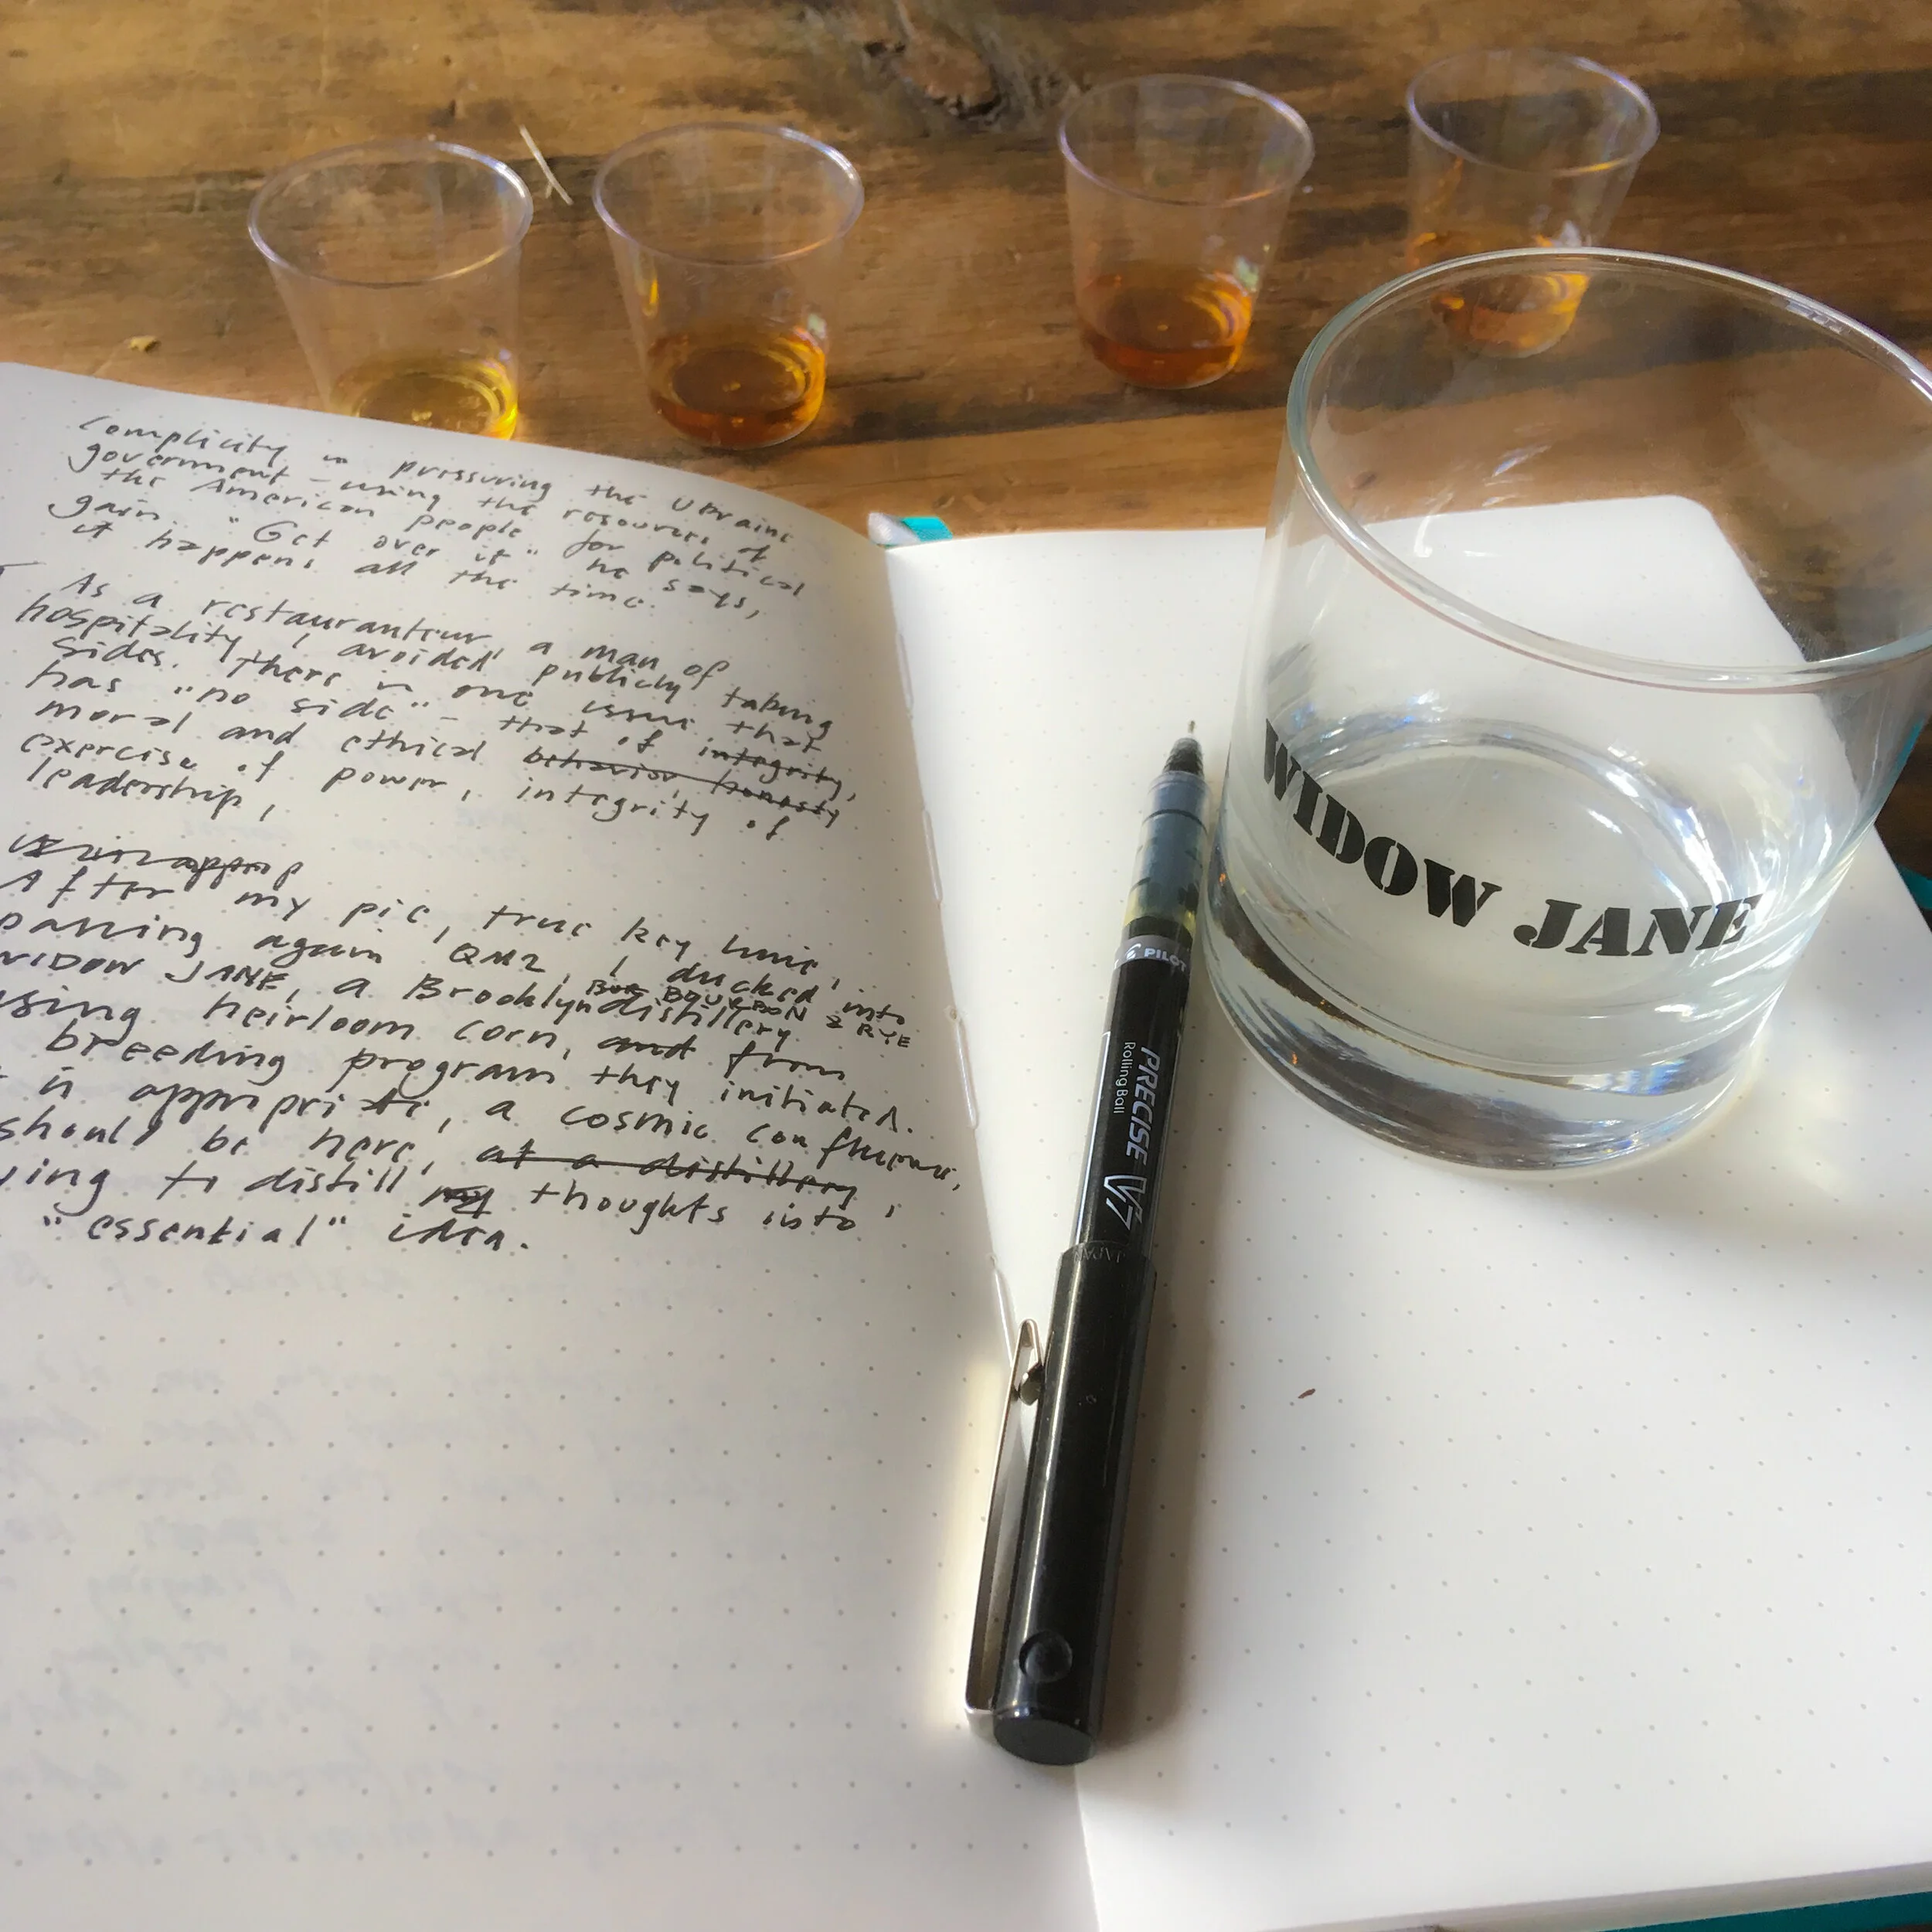 complicity in pressuring the Ukraine
government - using the resources of
the American people for political
gain. "Get over it" he says,
it happens all the time.
As a restauranteur, a man of
hospitality, I avoided publicly taking
sides. There is one issue that
has "no side" - that of integrity,
moral and ethical behavior, honesty
exercise of power, integrity of
leadership,
After my pie, true key lime,
passing again QM2, I ducked into
WIDOW JANE, a Brooklyn distillery
BOURBON & RYE
using heirloom corn, and from
breeding program they initiated.
is appropriate, a cosmic confluence,
should be here, at a distillery,
to distill my thoughts into
"essential" idea.
WIDOW JANE
PILOT
PRECISE V7
Rolling Ball
JAPAN